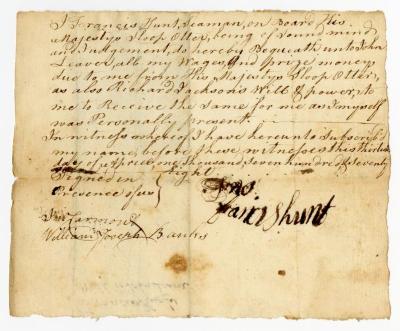 I Francis Hunt, Seaman, on Board His
Majestys Sloop Otter, being of Sound mind
and Judgement, do hereby Bequath unto John
Leaver, all my Wages, and prize money
due to me from His Majestys Sloop Otter,
as also Richard Jacksons Will & power, to
me to Receive the Same for me as I myself
was Personally present.
In witness whereof I have hereunto Subscrib'd
my name before these witnesses this
day of April one thousand Seven hundred & Seventy
Signed in Eight
Presence of us
hunt
William Joseph Banks